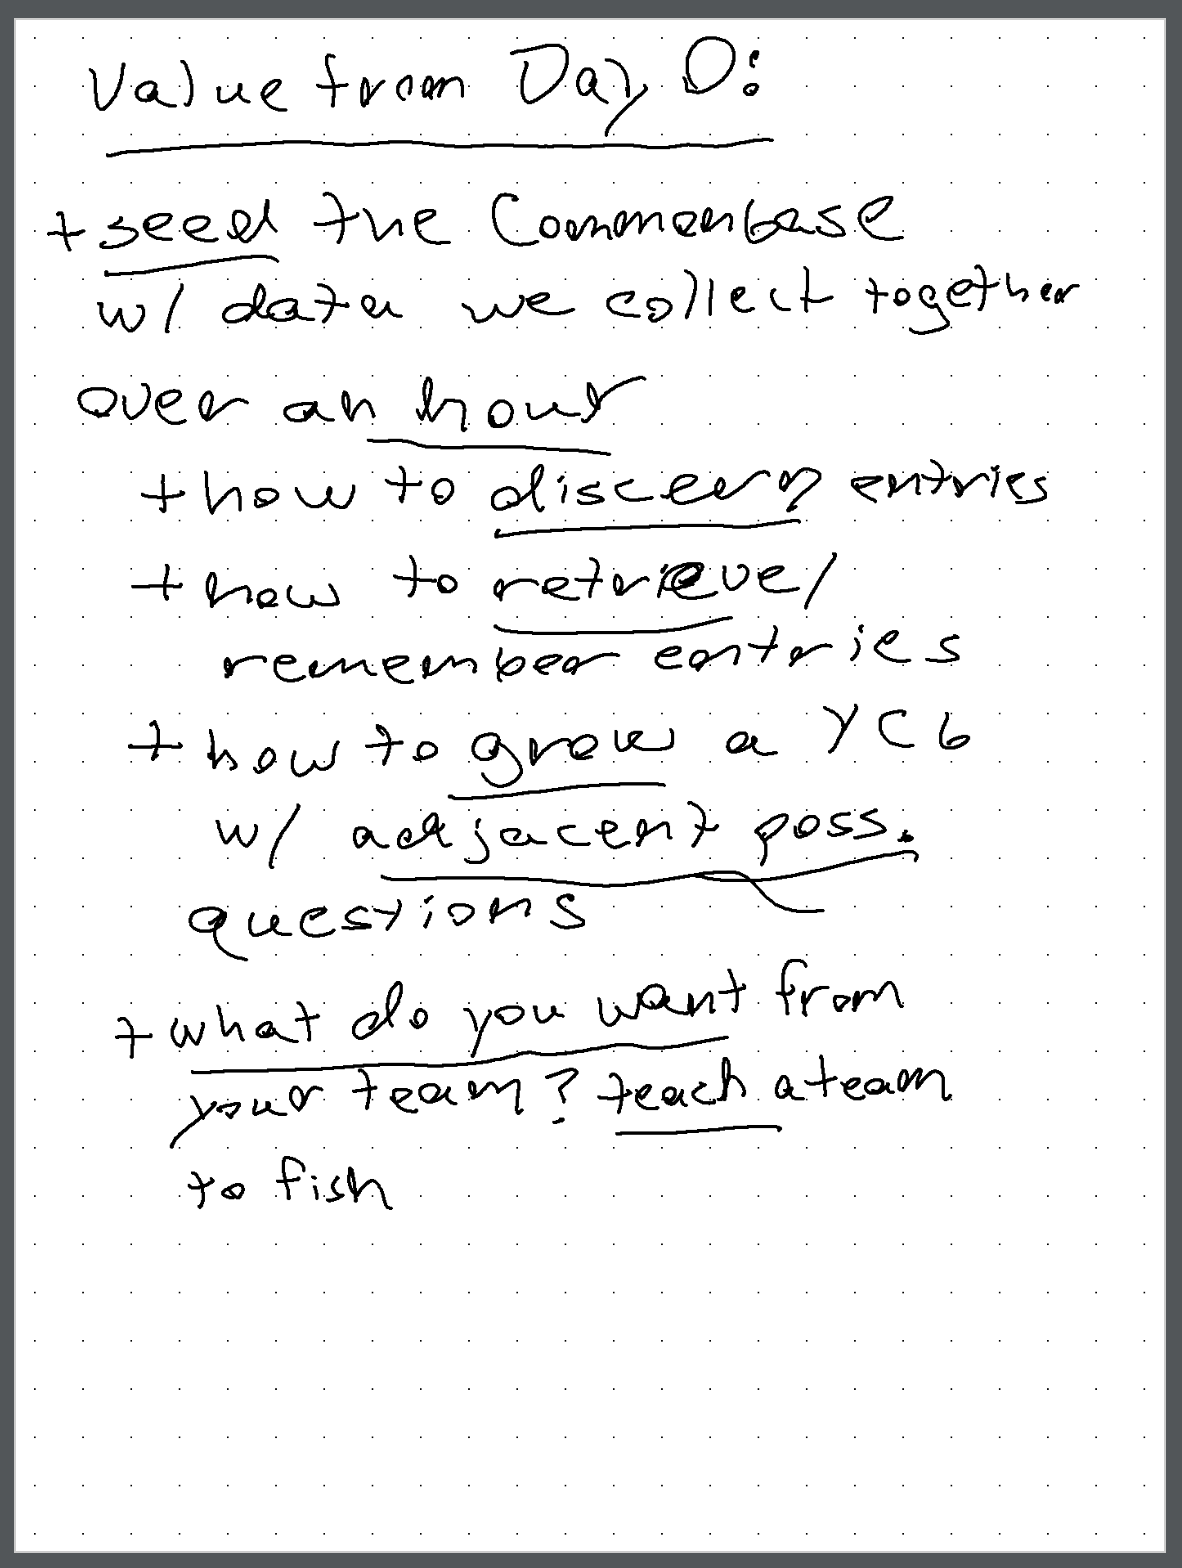 Value from Day 0:
+ seed the Commonbase
w/ data we collect together
over an hour
+ how to discern entries
+ how to retrieve/
remember entries
+ how to grow a YCb
w/ adjacent poss.
questions
+ what do you want from
your team? teach a team
to fish